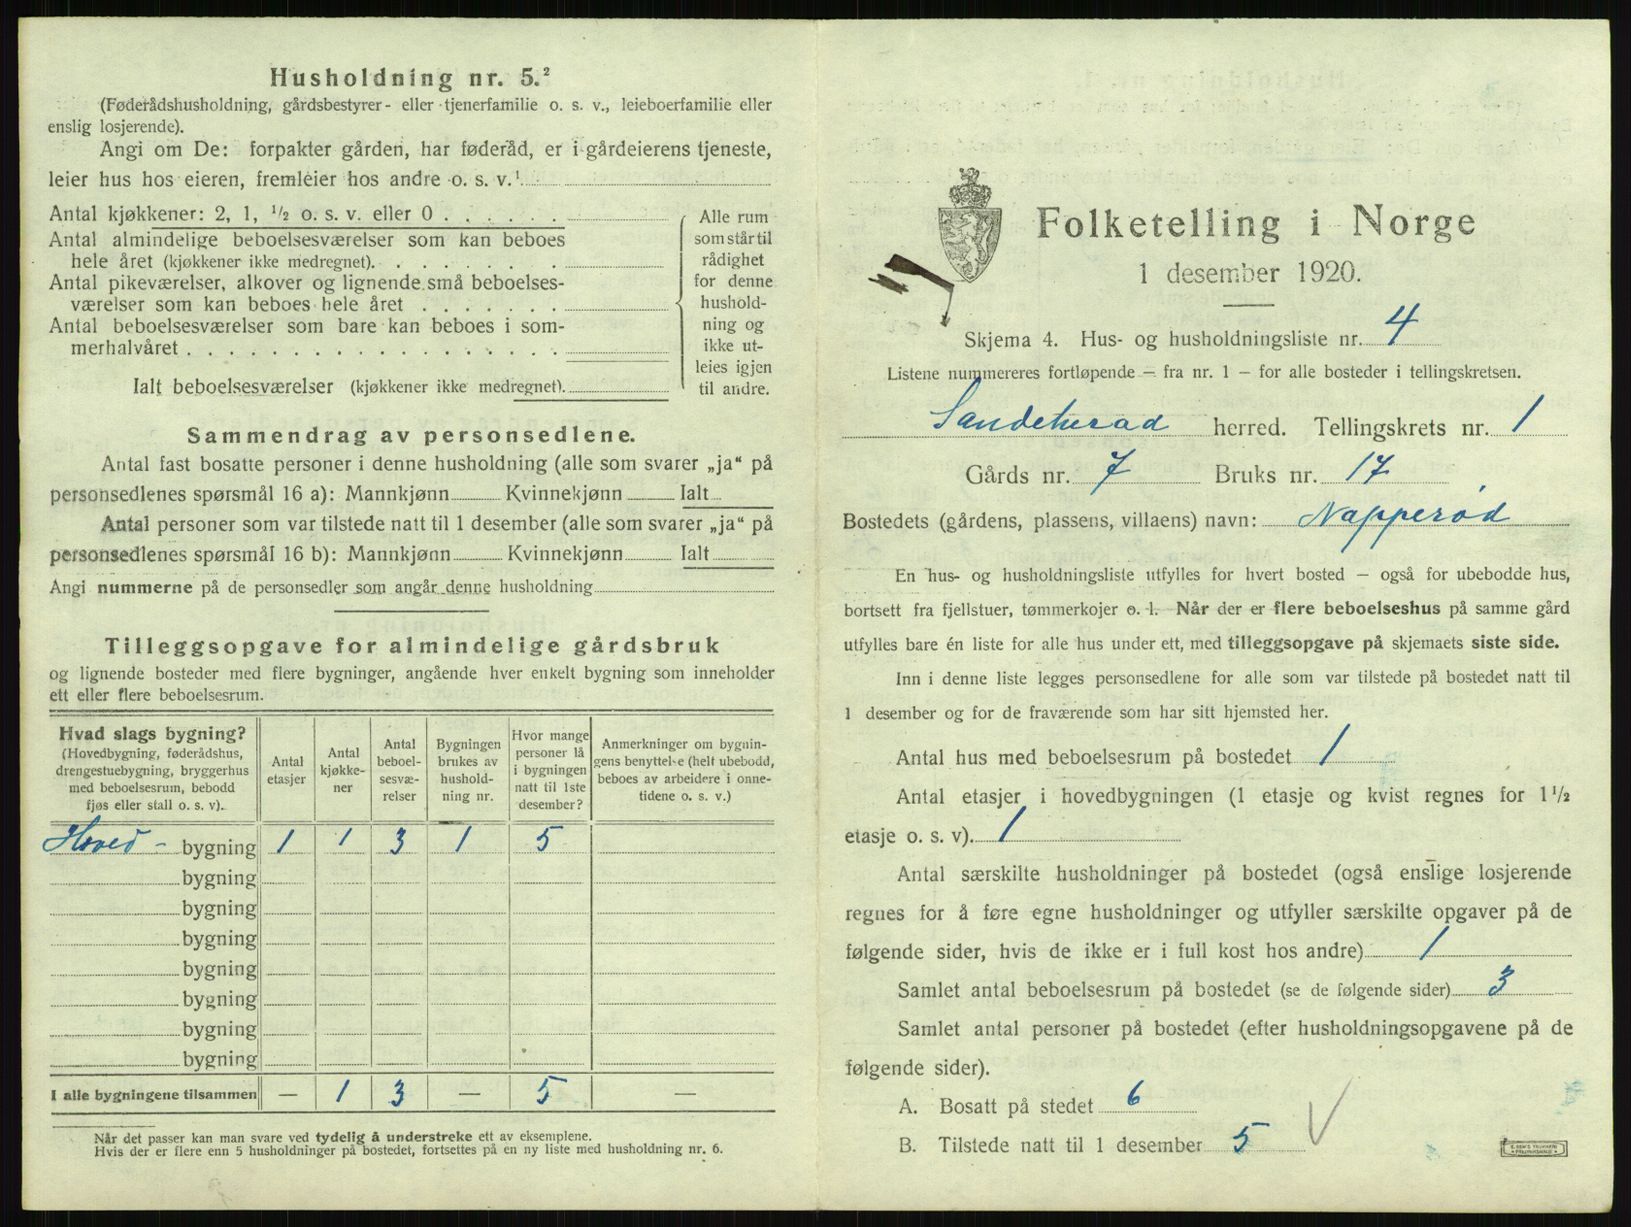 Husholdning nr. 5.²
(Føderådshusholdning, gårdsbestyrer- eller tjenerfamilie o. s. v., leieboerfamilie eller
enslig losjerende).
Angi om De: forpakter gården, har føderåd, er i gårdeierens tjeneste,
leier hus hos eieren, fremleier hos andre o. s. v.¹
Antal kjøkkener: 2, 1, ½ o. s. v. eller 0 . . . . . .
Antal almindelige beboelsesværelser som kan beboes
hele året (kjøkkener ikke medregnet). . . . . . . .
Antal pikeværelser, alkover og lignende små beboelses-
værelser som kan beboes hele året . . . . . . .
Antal beboelsesværelser som bare kan beboes i som-
merhalvåret . . . . . . . . . . . . . . . . . .
Ialt beboelsesværelser (kjøkkener ikke medregnet).
Alle rum
som står til
rådighet
for denne
hushold-
ning og
ikke ut-
leies igjen
til andre.
Sammendrag av personsedlene.
Antal fast bosatte personer i denne husholdning (alle som svarer „ja“ på
personsedlenes spørsmål 16 a): Mannkjønn Kvinnekjønn Ialt
Antal personer som var tilstede natt til 1 desember (alle som svarer „ja“ på
personsedlenes spørsmål 16 b): Mannkjønn Kvinnekjønn Ialt
Angi nummerne på de personsedler som angår denne husholdning
Tilleggsopgave for almindelige gårdsbruk
og lignende bosteder med flere bygninger, angående hver enkelt bygning som inneholder
ett eller flere beboelsesrum.
Hvad slags bygning?
(Hovedbygning, føderådshus,
drengestuebygning, bryggerhus
med beboelsesrum, bebodd
fjøs eller stall o. s. v).
Antal
etasjer
Antal
kjøkke-
ner
Antal
beboel-
sesvæ-
relser
Bygningen
brukes av
hushold-
ning nr.
Hvor mange
personer lå
i bygningen
natt til 1ste
desember?
Anmerkninger om bygnin-
gens benyttelse (helt ubebodd,
beboes av arbeidere i onne-
tidene o. s. v.)
Hoved- bygning 1 1 3 1 5
bygning
bygning
bygning
bygning
bygning
bygning
bygning
I alle bygningene tilsammen — 1 3 — 5 —
Når det passer kan man svare ved tydelig å understreke ett av eksemplene.
Hvis der er flere enn 5 husholdninger på bostedet, fortsettes på en ny liste med husholdning nr. 6.
Folketelling i Norge
1 desember 1920.
Skjema 4. Hus- og husholdningsliste nr. 4
Listene nummereres fortløpende — fra nr. 1 — for alle bosteder i tellingskretsen.
Sandeherad herred. Tellingskrets nr. 1
Gårds nr. 7 Bruks nr. 17
Bostedets (gårdens, plassens, villaens) navn: Napperød
En hus- og husholdningsliste utfylles for hvert bosted — også for ubebodde hus,
bortsett fra fjellstuer, tømmerkojer o. l. Når der er flere beboelseshus på samme gård
utfylles bare én liste for alle hus under ett, med tilleggsopgave på skjemaets siste side.
Inn i denne liste legges personsedlene for alle som var tilstede på bostedet natt til
1 desember og for de fraværende som har sitt hjemsted her.
Antal hus med beboelsesrum på bostedet 1
Antal etasjer i hovedbygningen (1 etasje og kvist regnes for 1½
etasje o. s. v). 1
Antal særskilte husholdninger på bostedet (også enslige losjerende
regnes for å føre egne husholdninger og utfyller særskilte opgaver på de
følgende sider, hvis de ikke er i full kost hos andre) 1
Samlet antal beboelsesrum på bostedet (se de følgende sider) 3
Samlet antal personer på bostedet (efter husholdningsopgavene på de
følgende sider).
A. Bosatt på stedet 6
B. Tilstede natt til 1 desember 5